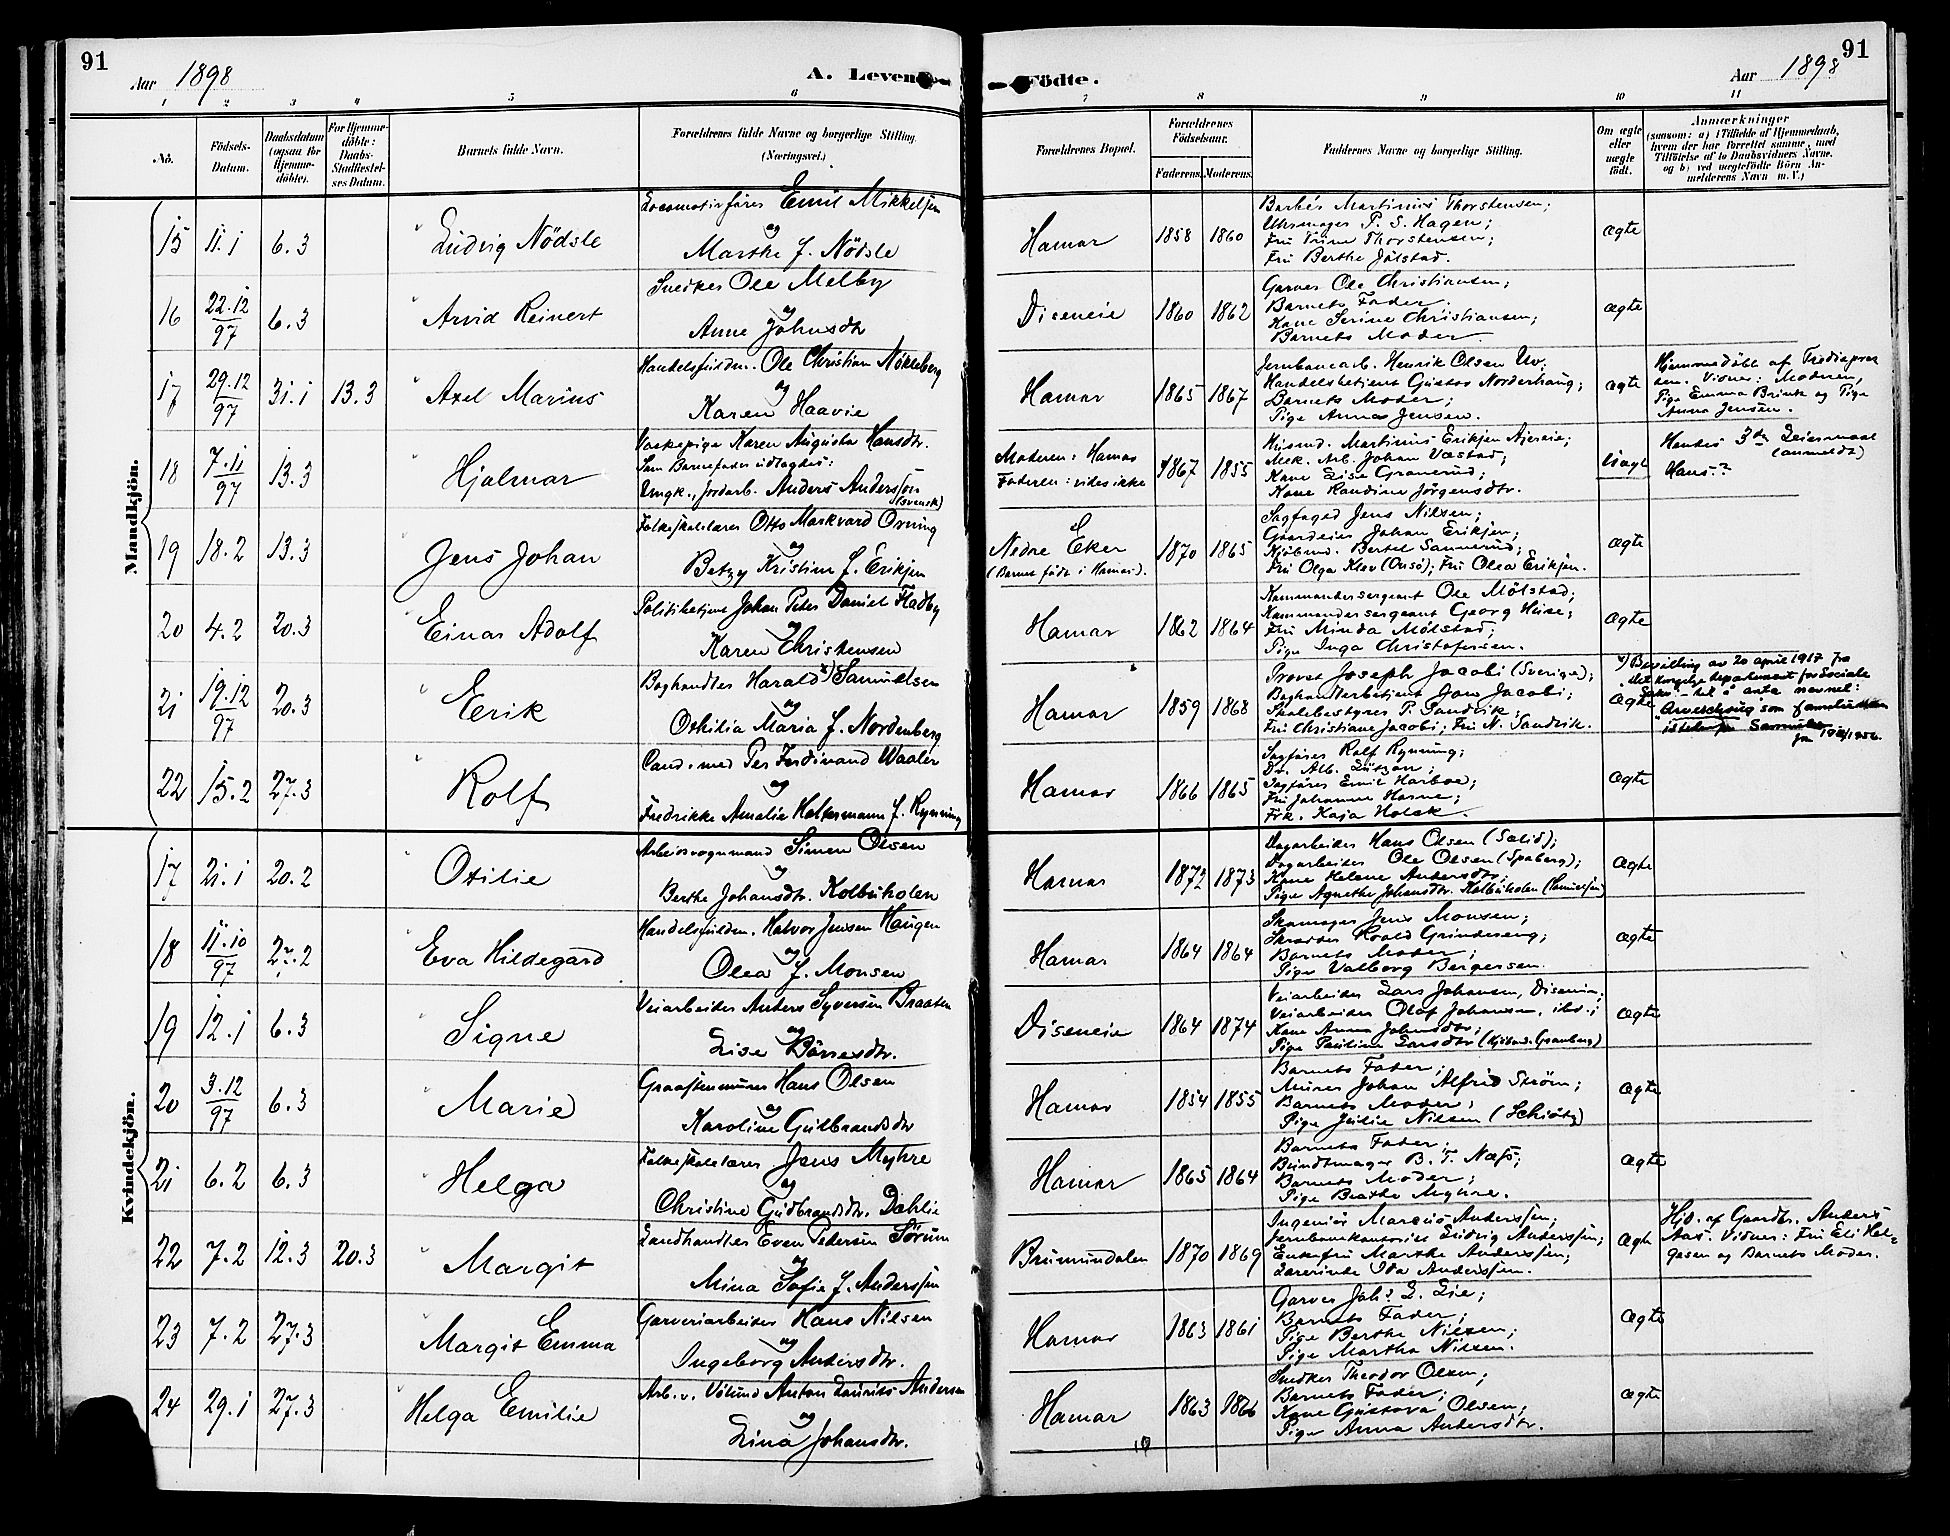 91
Aar 1898
A. Levende
Födte.
Aar 1898
91
1 2 3 4 5 6 7 8 9 10 11
No.
Födsels-
Datum.
Daabsdatum
(ogsaa for
Hjemme-
döbte).
For Hjemme-
döbte:
Daabs-
Stadfæstel-
ses Datum.
Barnets fulde Navn.
Forældrenes fulde Navne og borgerlige Stilling.
(Næringsvei.)
Forældrenes Bopæl.
Forældrenes
Födselsaar.
Faderens. Moderens.
Faddernes Navne og borgerlige Stilling.
Om ægte
eller
uægte
født.
Anmærkninger
(saasom: a) i Tilfælde af Hjemmedaab,
hvem der har forrettet samme, med
Tilföielse af to Daabsvidners Navne,
og b) ved uægtefödte Börn An-
melderens Navn m. V.)
Mandkjön.
15 11.1 6.3 Ludvig Nödsle
Locomotivfører Emil Mikkelsen
og
Marthe f. Nödsle
Hamar 1858 1860
Martinius Thorstensen;
Uhrmager P. S. Hagen;
Fru Trine Thorstensen;
Fru Berthe Jølstad.
ægte
16 22.12/97 6.3 Arvid Reinert
Snedker Ole Melby
og
Anne Johnsdtr
Diseneie 1860 1862
Garver Ole Christiansen;
Barnets Fader.
Kone Serine Christiansen;
Barnets Moder.
ægte
17 29.12/97 31.1 13.3 Axel Marius
Handelsfuldm. Ole Christian Nökleberg
og
Karen Haavie
Hamar 1865 1867
Jernbanearb. Henrik Olsen
Handelsbetjent Gustav Norderhaug;
Barnets Moder;
Pige Anna Jensen.
ægte
Hjemmedøbt af
Vidner: Moderen,
Pige Emma Brink og Pige
Anna Jensen.
18 7.11/97 13.3 Hjalmar
Vaskepige Karen Augusta Hansdtr.
Som Barnefader udlagdes:
Ungk., Jordarb. Anders Andersson
(svensk)
Moderen: Hamar
Faderen: vides ikke
1867 1855
Husmd. Martinius Eriksen
Mek. Arb. Johan Vestad;
Kone Lise Granerud;
Kone Randine Jörgensdtr.
Uægte
Hendes 3die Leiermaal
(anmeldt)
Hans?
19 18.2 13.3 Jens Johan
Folkeskolelærer Otto Markvard Örning
og
Betzy Kristine f. Eriksen
Nedre Eker
(Barnet født i Hamar).
1870 1865
Sagfoged Jens Nilsen;
Gaardeier Johan Eriksen;
Kjöbmd. Bertel Sannerud;
Fru Olga Klev (Onsö); Fru Olea Eriksen.
ægte
20 4.2 20.3 Einar Adolf
Politibetjent Johan Peter Daniel Fladby
og
Karen Christensen
Hamar 1862 1864
Kommandersergeant Ole Mölstad;
Kommandersergeant Georg Huse;
Fru Minda Mölstad;
Pige Inga Christofersen.
ægte
21 19.12/97 20.3 Erik
Boghandler Harald x) Samuelsen
og
Othilia Maria f. Nordenberg
Hamar 1859 1868
Provst Joseph Jacobi (Sverige);
Boghandlerbetjent Jons Jacobi;
Skolebestyrer P. Sandvik;
Fru Christiane Jacobi; Fru N. Sandvik.
ægte
x) Bevilling av 20 april 1917 fra
det kongelige departement for Sociale
Saker til å anta navnet:
som familienavn
istedenfor
22 15.2 27.3 Rolf
Cand. med Per Ferdinand Waaler
og
Fredrikke Amalie Holtermann f. Rynning
Hamar 1866 1865
Sagfører Rolf Rynning;
Dr. Alb. Lützow;
Sagfører Emil Harboe;
Fru Johanne Horne;
Frk. Kaja Holck.
ægte
Kvindekjön.
17 21.1 20.2 Otilie
Arbeidsvognmand Simen Olsen
og
Berthe Johansdtr. Kolbuholen
Hamar 1872 1873
Dagarbeider Hans Olsen (Sælid);
Dagarbeider Ole Olsen (Spaberg);
Kone Helene Andersdtr;
Pige Agnethe Johansdtr. Kolbuholen
ægte
18 11.10/97 27.2 Eva Hildegard
Handelsfuldm. Halvor Jensen Haugen
og
Olea f. Monsen
Hamar 1864 1864
Skomager Jens Monsen;
Skrædder Roald Grindereng;
Barnets Moder;
Pige Valborg Bergersen.
ægte
19 12.1 6.3 Signe
Veiarbeider Anders Syversen Braaten
og
Lise Börresdtr.
Diseneie 1864 1874
Veiarbeider Lars Johansen, Disenie;
Veiarbeider Olof Johansen, ibd.;
Kone Anna Johnsdtr;
Pige Pauline Larsdtr (Kjöbmd. Granberg)
ægte
20 3.12/97 6.3 Marie
Graastensmurer Hans Olsen
og
Karoline Gulbrandsdtr
Hamar 1854 1855
Barnets Fader;
Murer Johan Alfred Ström;
Barnets Moder;
Pige Julie Nilsen (Schiötz)
ægte
21 6.2 6.3 Helga
Folkeskolelærer Jens Myhre
og
Christine Gudbrandsdtr. Dæhlie
Hamar 1865 1864
Barnets Fader;
Bundtmager B. T. Næss;
Barnets Moder;
Pige Beathe Myhre.
ægte
22 7.2 12.3 20.3 Margit
Landhandler Even Pedersen Sörum
og
Mina Sofie f. Anderssen
Brumundalen 1870 1869
Ingeniör Marcus Anderssen;
Jernbanekontorist Ludvig Anderssen;
Enkefru Marthe Anderssen;
Lærerinde Ida Anderssen.
ægte
Hjd. af Gaardbr. Anders
Aas. Vidner: Fru Eli Hel-
gesen og Barnets Moder.
23 7.2 27.3 Margit Emma
Garveriarbeider Hans Nilsen
og
Ingeborg Andersdtr.
Hamar 1863 1861
Garver Johs. L. Lie;
Barnets Fader;
Pige Berthe Nilsen;
Pige Martha Nilsen.
ægte
24 29.1 27.3 Helga Emilie
Arb. v. Vølund Anton Laurits Andersen
og
Lina Johansdtr.
Hamar 1863 1866
Snedker Theodor Olsen;
Barnets Fader;
Kone Gustava Olsen;
Pige Anna Andersdtr.
ægte